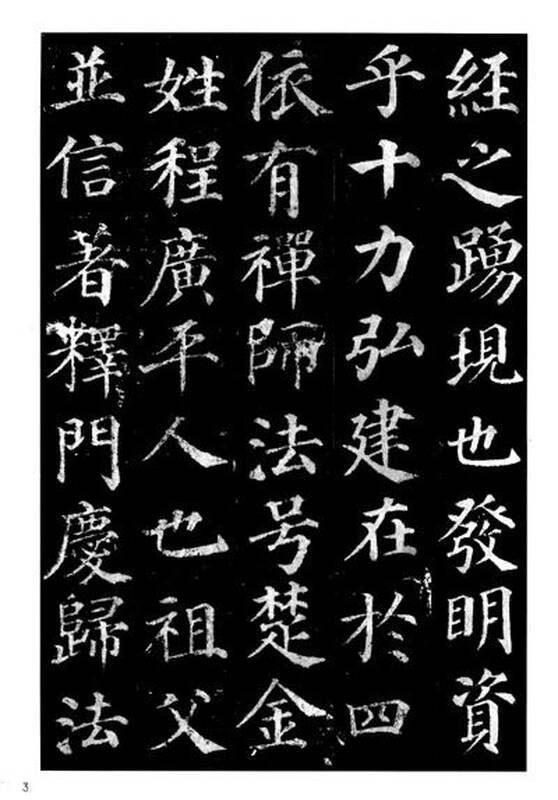 経之踴現也發明資
乎十力弘建在於四
依有禪師法号楚金
姓程廣平人也祖父
並信著釋門慶歸法
3